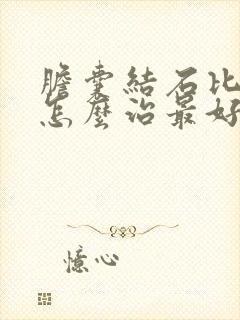 膽囊結石比
怎麼治最好
憶心